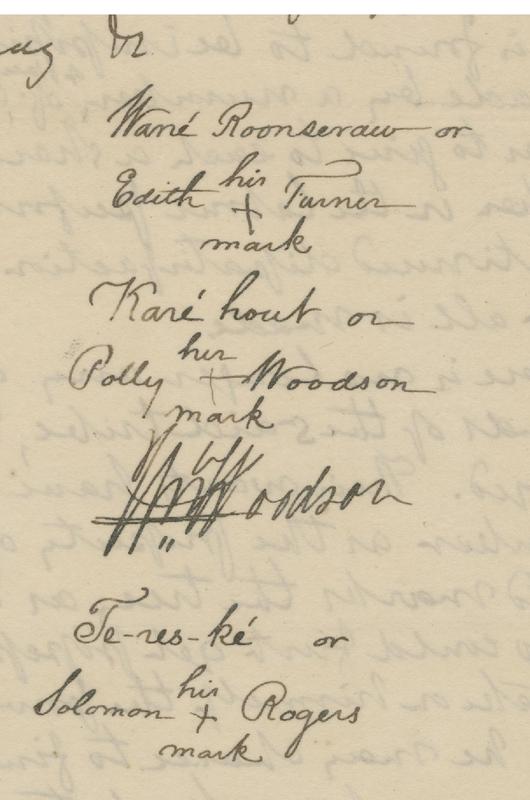 Wané Roonseraw or
Edith his + Turner
mark
Karé hout or
Polly her + Woodson
mark
Wm Woodson
Te-res-ké or
Solomon his + Rogers
mark